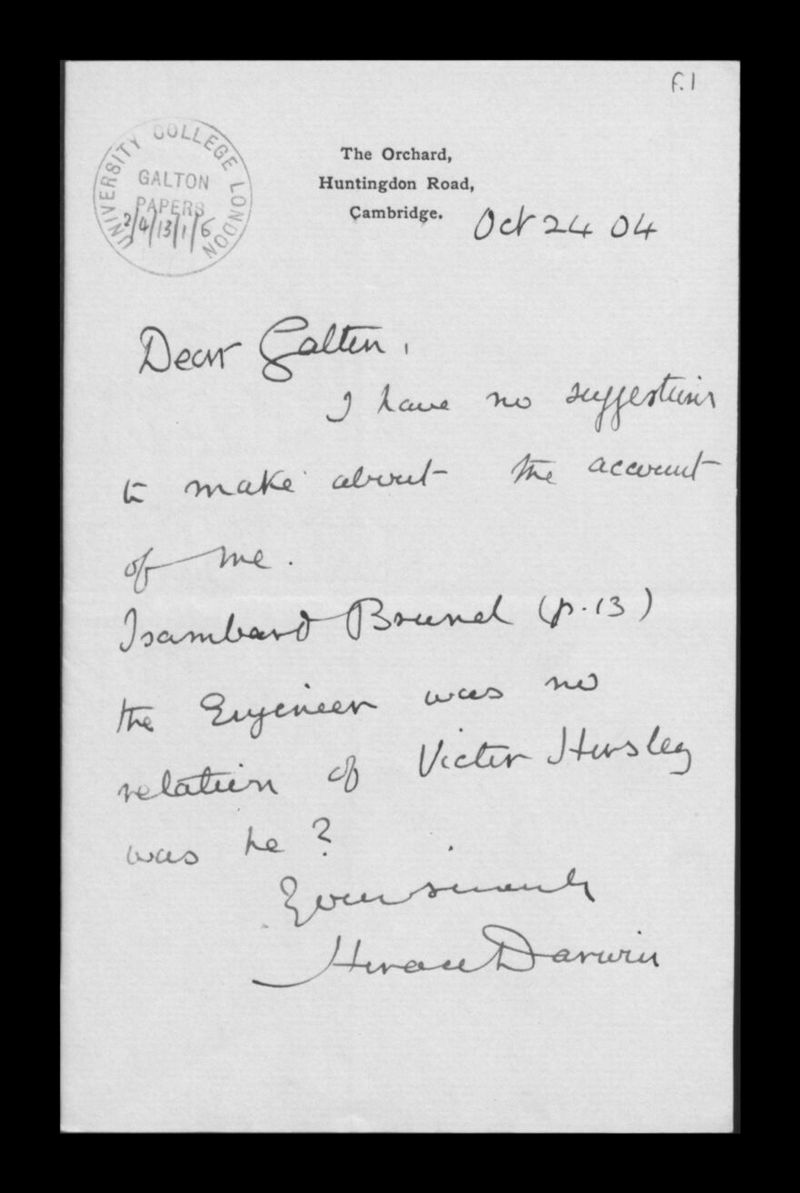 f.1
UNIVERSITY COLLEGE LONDON
GALTON
PAPERS
2/4/13/1/6
The Orchard,
Huntingdon Road,
Cambridge.
Oct 24 04
Dear Galton,
I have no suggestions
to make about the account
of me.
Isambard Brunel (p. 13)
the Engineer was no
relation of Victor Horsley
was he?
Yours sincerely
Horace Darwin